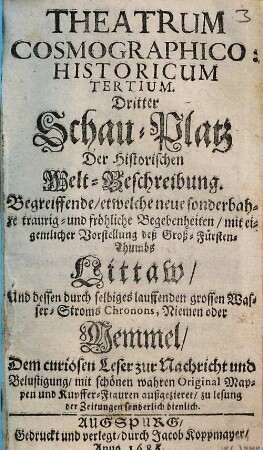 3
THEATRUM
COSMOGRAPHICO-
HISTORICUM
TERTIUM.
Dritter
Schau-Platz
Der Historischen
Welt-Beschreibung.
Begreiffende/ etwelche neue sonderbah-
re traurig- und fröhliche Begebenheiten/ mit ei-
gentlicher Vorstellung deß Groß-Fürsten-
Thumbs
Littaw/
Und dessen durch selbiges lauffenden grossen Was-
ser-Stroms Chronons, Niemen oder
Memmel/
Dem curiosen Leser zur Nachricht und
Belustigung/ mit schönen wahren Original Map-
pen und Kupffer-Figuren außgezieret/ zu lesung
der Zeitungen sonderlich dienlich.
AUGSPURG/
Gedruckt und verlegt/ durch Jacob Koppmayer/
Anno